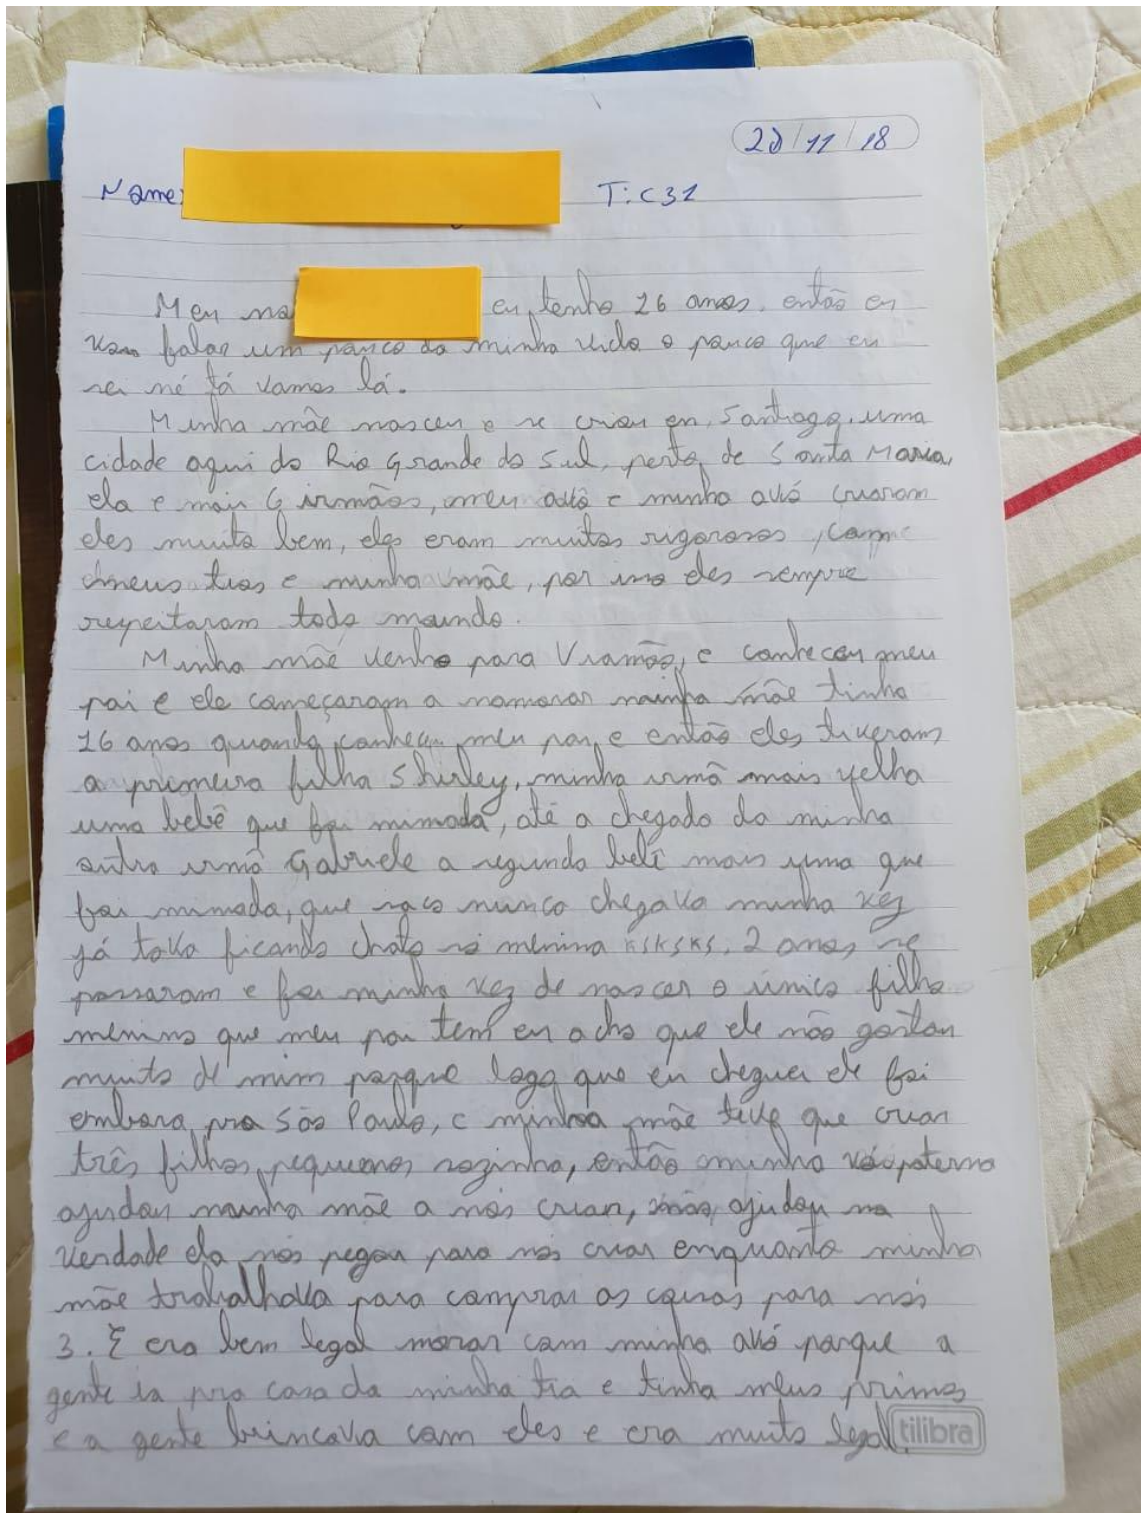 28/11/18
Nome: T: C31
Meu no eu tenho 16 anos, então eu
vou falar um pouco da minha vida o pouco que eu
sei né tá vamos lá.
Minha mãe nasceu e se criou en, Santiago, uma
cidade aqui do Rio Grande do Sul, perto de Santa Maria,
ela e mais 6 irmãos, meu avô e minha avó criaram
eles muito bem, eles eram muitos rigorosos, com
meus tios e minha mãe, por isso eles sempre
respeitaram todo mundo.
Minha mãe venho para Viamão, e conheceu meu
pai e ele começaram a namorar minha mãe tinha
16 anos quando conheceu meu pai, e então eles tiveram
a primeira filha Shirley, minha irmã mais velha
uma bebê que foi mimada, até a chegada da minha
outra irmã Gabriele a segunda bebê mais uma que
foi mimada, que saco nunca chegava minha vez
já tava ficando chato só menina ksksks, 2 anos se
passaram e foi minha vez de nascer o único filho
menino que meu pai tem eu acho que ele não gostou
muito de mim porque logo que eu cheguei ele foi
embora pra São Paulo, e minha mãe teve que criar
três filhos pequenos sozinha, então minha vó paterna
ajudou minha mãe a nós criar, ajudou na
verdade ela nos pegou para nós criar enquanto minha
mãe trabalhava para comprar as coisas para nós
3. E era bem legal morar com minha avó porque a
gente ia pra casa da minha tia e tinha meus primos
e a gente brincava com eles e era muito legal.
tilibra